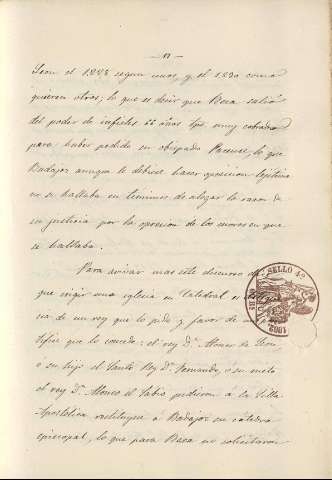 — 17 —
Leon el 1228 segun unos, y el 1230 como
quieren otros; lo que es decir que Baeza salió
del poder de infieles antes muy cobrada
para haber pedido su obispado Pacense, lo que
Badajoz aunque le debiese hacer oposicion legitima
no se hallaba en terminos de alegar la razon de
su justicia por la opresion de los moros en que
se hallaba.
Para avivar mas este discurso
que erigir una iglesia en Catedral es
cia de un rey que lo pide y favor de un pon-
tifice que lo concede: el rey Dn. Alonso de Leon
ó su hijo el Santo Rey Dn. Fernando, ó su nieto
el rey Dn. Alonso el Sabio pidieron á la Silla
Apostolica restituyese á Badajoz su cátedra
episcopal, lo que para Baeza no solicitaron
SELLO 4º
1862